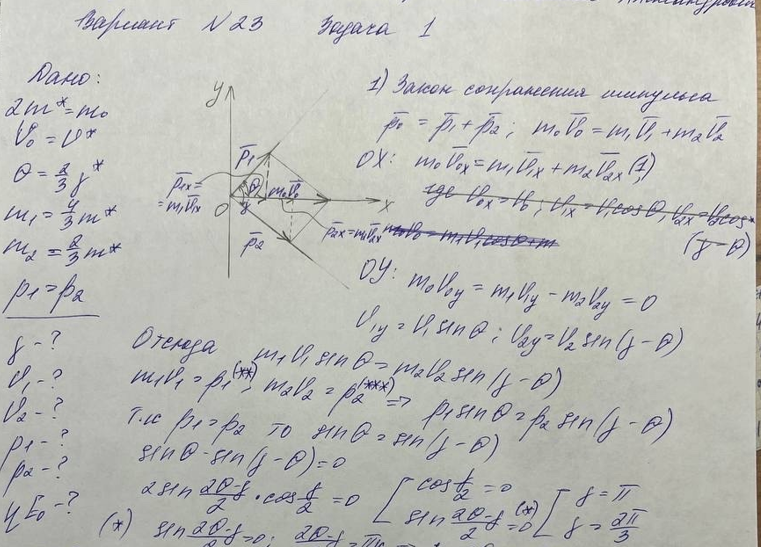 Вариант N 23 Задача 1
Дано:
2m* = m₀
V₀ = V*
θ = 2/3 γ*
m₁ = 4/3 m*
m₂ = 2/3 m*
p₁ = p₂
γ - ?
V₁ - ?
V₂ - ?
p₁ - ?
p₂ - ?
y
p̄₁
θ
m₀V̄₀
p̄₁ₓ =
= m₁V̄₁ₓ
O
γ
x
p̄₂
p̄₂ₓ = m₂V̄₂ₓ
1) Закон сохранения импульса
p̄₀ = p̄₁ + p̄₂ ; m₀V̄₀ = m₁V̄₁ + m₂V̄₂
OX: m₀V̄₀ₓ = m₁V̄₁ₓ + m₂V̄₂ₓ (1),
где V₀ₓ = V₀ ; V₁ₓ = V₁cosθ, V₂ₓ = V₂cos
(γ - θ)
m₀V₀ = m₁V₁cosθ + m
OY: m₀V₀y = m₁V₁y - m₂V₂y = 0
V₁y = V₁ sinθ ; V₂y = V₂ sin(γ - θ)
Отсюда m₁V₁ sinθ = m₂V₂ sin(γ - θ)
m₁V₁ = p₁ (**) ; m₂V₂ = p₂ (***) ⇒ p₁sinθ = p₂ sin(γ - θ)
Т.к p₁ = p₂ то sinθ = sin(γ - θ)
sinθ - sin(γ - θ) = 0
2sin (2θ-γ)/2 · cos γ/2 = 0 [ cos γ/2 = 0 [ γ = π
sin (2θ-γ)/2 = 0 (*) γ = 2π/3
(*) sin (2θ-γ)/2 = 0 ;